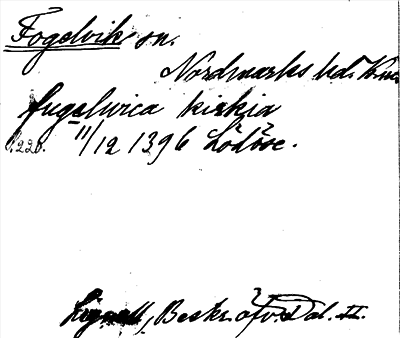 Fogelvik sn.
Nordmarks hd. Vrml
fugelvica kirkia
s. 220. 11/12 1396 Lödöse.
Lignell, Beskr. öfv. Dal. II.